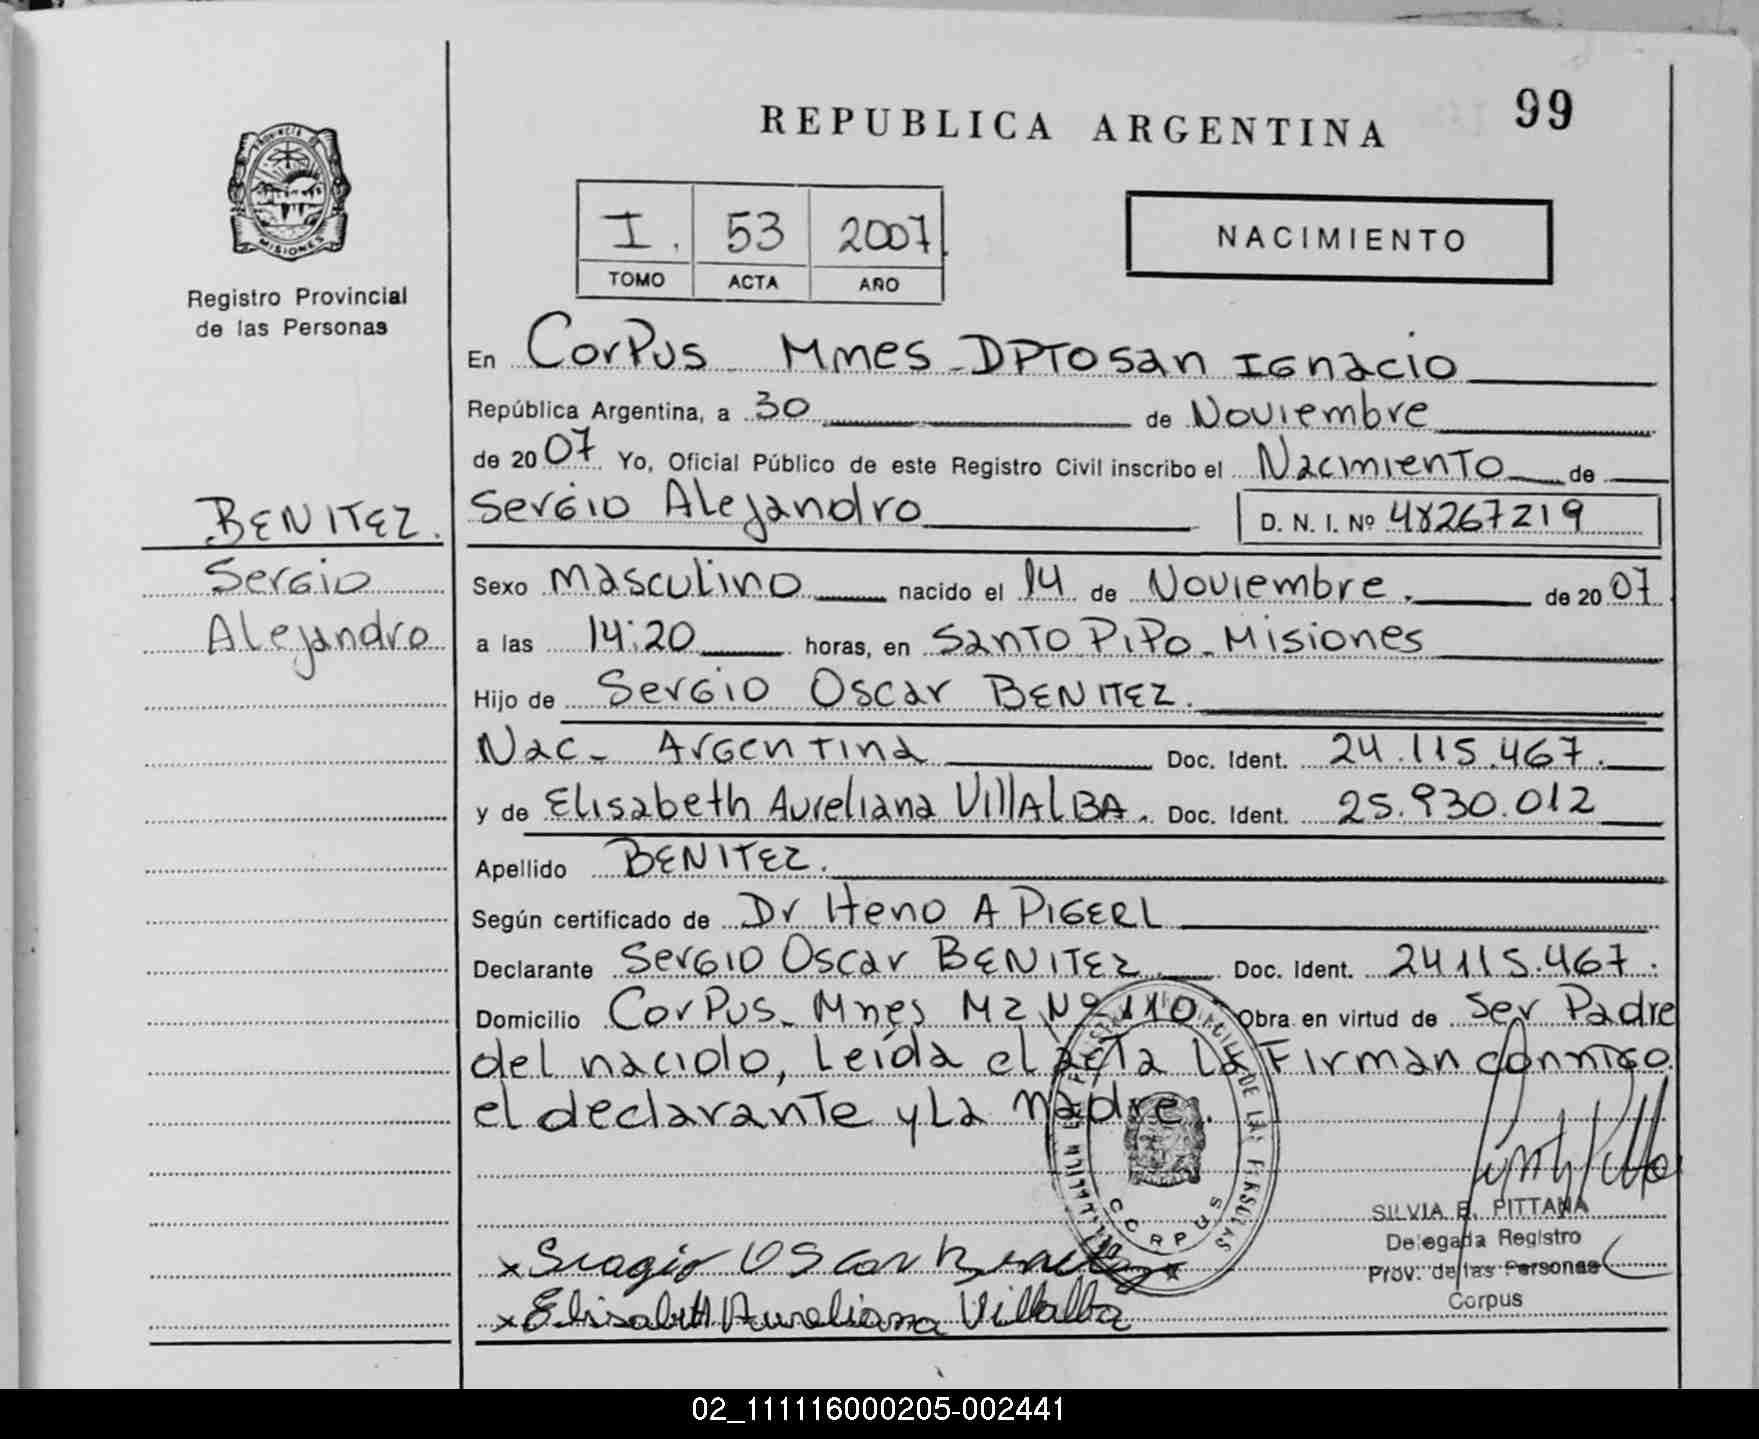 REPUBLICA ARGENTINA
99
PROVINCIA DE
MISIONES
Registro Provincial
de las Personas
I. 53 2007
TOMO ACTA AÑO
NACIMIENTO
En Corpus Mnes - DPTO San Ignacio
República Argentina, a 30 de Noviembre
de 2007 Yo, Oficial Público de este Registro Civil inscribo el Nacimiento de
Sergio Alejandro D. N. I. Nº 48267219
BENITEZ.
Sergio
Alejandro
Sexo Masculino nacido el 14 de Noviembre. de 2007
a las 14:20 horas, en Santo Pipo - Misiones
Hijo de Sergio Oscar BENITEZ.
Nac - Argentina Doc. Ident. 24.115.467.
y de Elisabeth Aureliana VillALBA. Doc. Ident. 25.930.012
Apellido BENITEZ.
Según certificado de Dr Heno A PIGERL
Declarante Sergio Oscar BENITEZ Doc. Ident. 24115.467.
Domicilio Corpus - Mnes Mz Nº 110 Obra en virtud de Ser Padre
del nacido, Leída el acta la Firman conmigo
el declarante y La madre.
DE LAS PERSONAS
CORPUS
SILVIA E. PITTANA
Delegada Registro
Prov. de las Personas
Corpus
x Sergio Oscar Benitez
x Elisabeth Aureliana Villalba
02_111116000205-002441